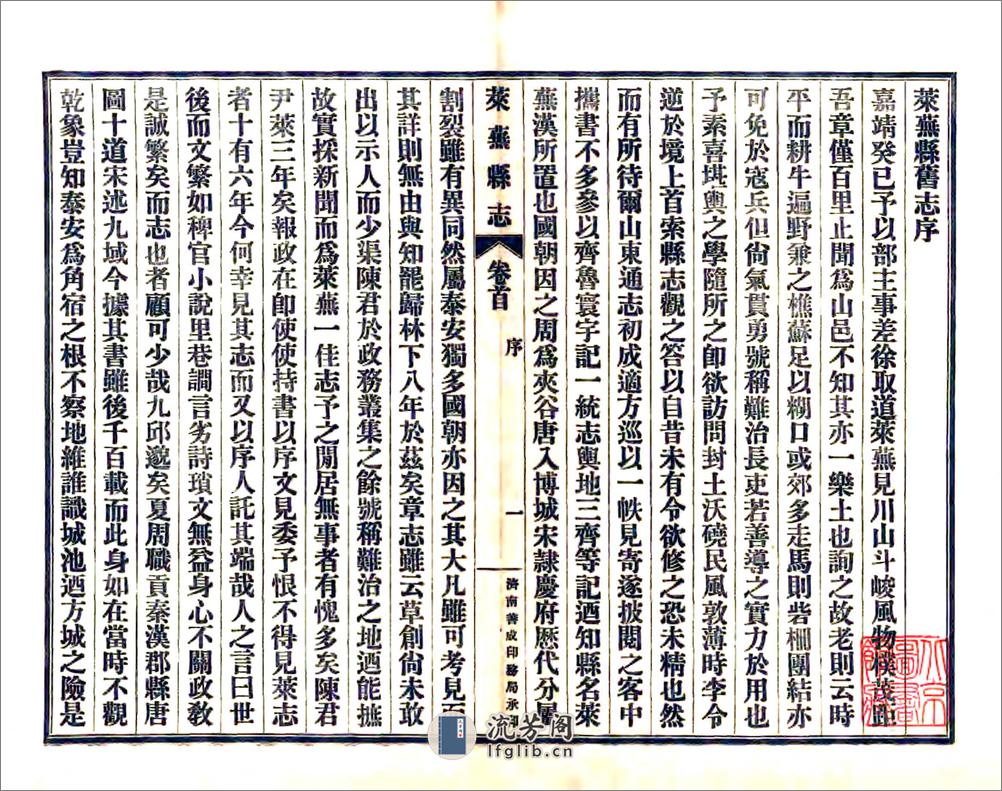 萊蕪縣舊志序
嘉靖癸巳予以部主事差徐取道萊蕪見川山斗峻風物樸茂距
吾章僅百里止聞為山邑不知其亦一樂土也詢之故老則云時
平而耕牛遍野兼之樵蘇足以糊口或郊多走馬則砦柵團結亦
可免於寇兵但尙氣貫勇號稱難治長吏若善導之實力於用也
予素喜堪輿之學隨所之卽欲訪問封土沃磽民風敦薄時李令
逆於境上首索縣志觀之答以自昔未有令欲修之恐未精也然
而有所待爾山東通志初成適方巡以一帙見寄遂披閱之客中
攜書不多參以齊魯寰宇記一統志輿地三齊等記迺知縣名萊
蕪漢所置也國朝因之周為夾谷唐入博城宋隸慶府歷代分屬
萊蕪縣志 卷首 序 一 濟南善成印務局承印
割裂雖有異同然屬泰安獨多國朝亦因之其大凡雖可考見而
其詳則無由與知罷歸林下八年於茲矣章志雖云草創尙未敢
出以示人而少渠陳君於政務叢集之餘號稱難治之地迺能摭
故實採新聞而為萊蕪一佳志予之閒居無事者有愧多矣陳君
尹萊三年矣報政在卽使使持書以序文見委予恨不得見萊志
者十有六年今何幸見其志而又以序人託其端哉人之言曰世
後而文繁如稗官小說里巷譋言劣詩瑣文無益身心不關政敎
是誠繁矣而志也者顧可少哉九邱邈矣夏周職貢秦漢郡縣唐
圖十道宋述九域今據其書雖後千百載而此身如在當時不觀
乾象豈知泰安為角宿之根不察地維誰識城池迺方城之險是
流芳阁
lfglib.cn